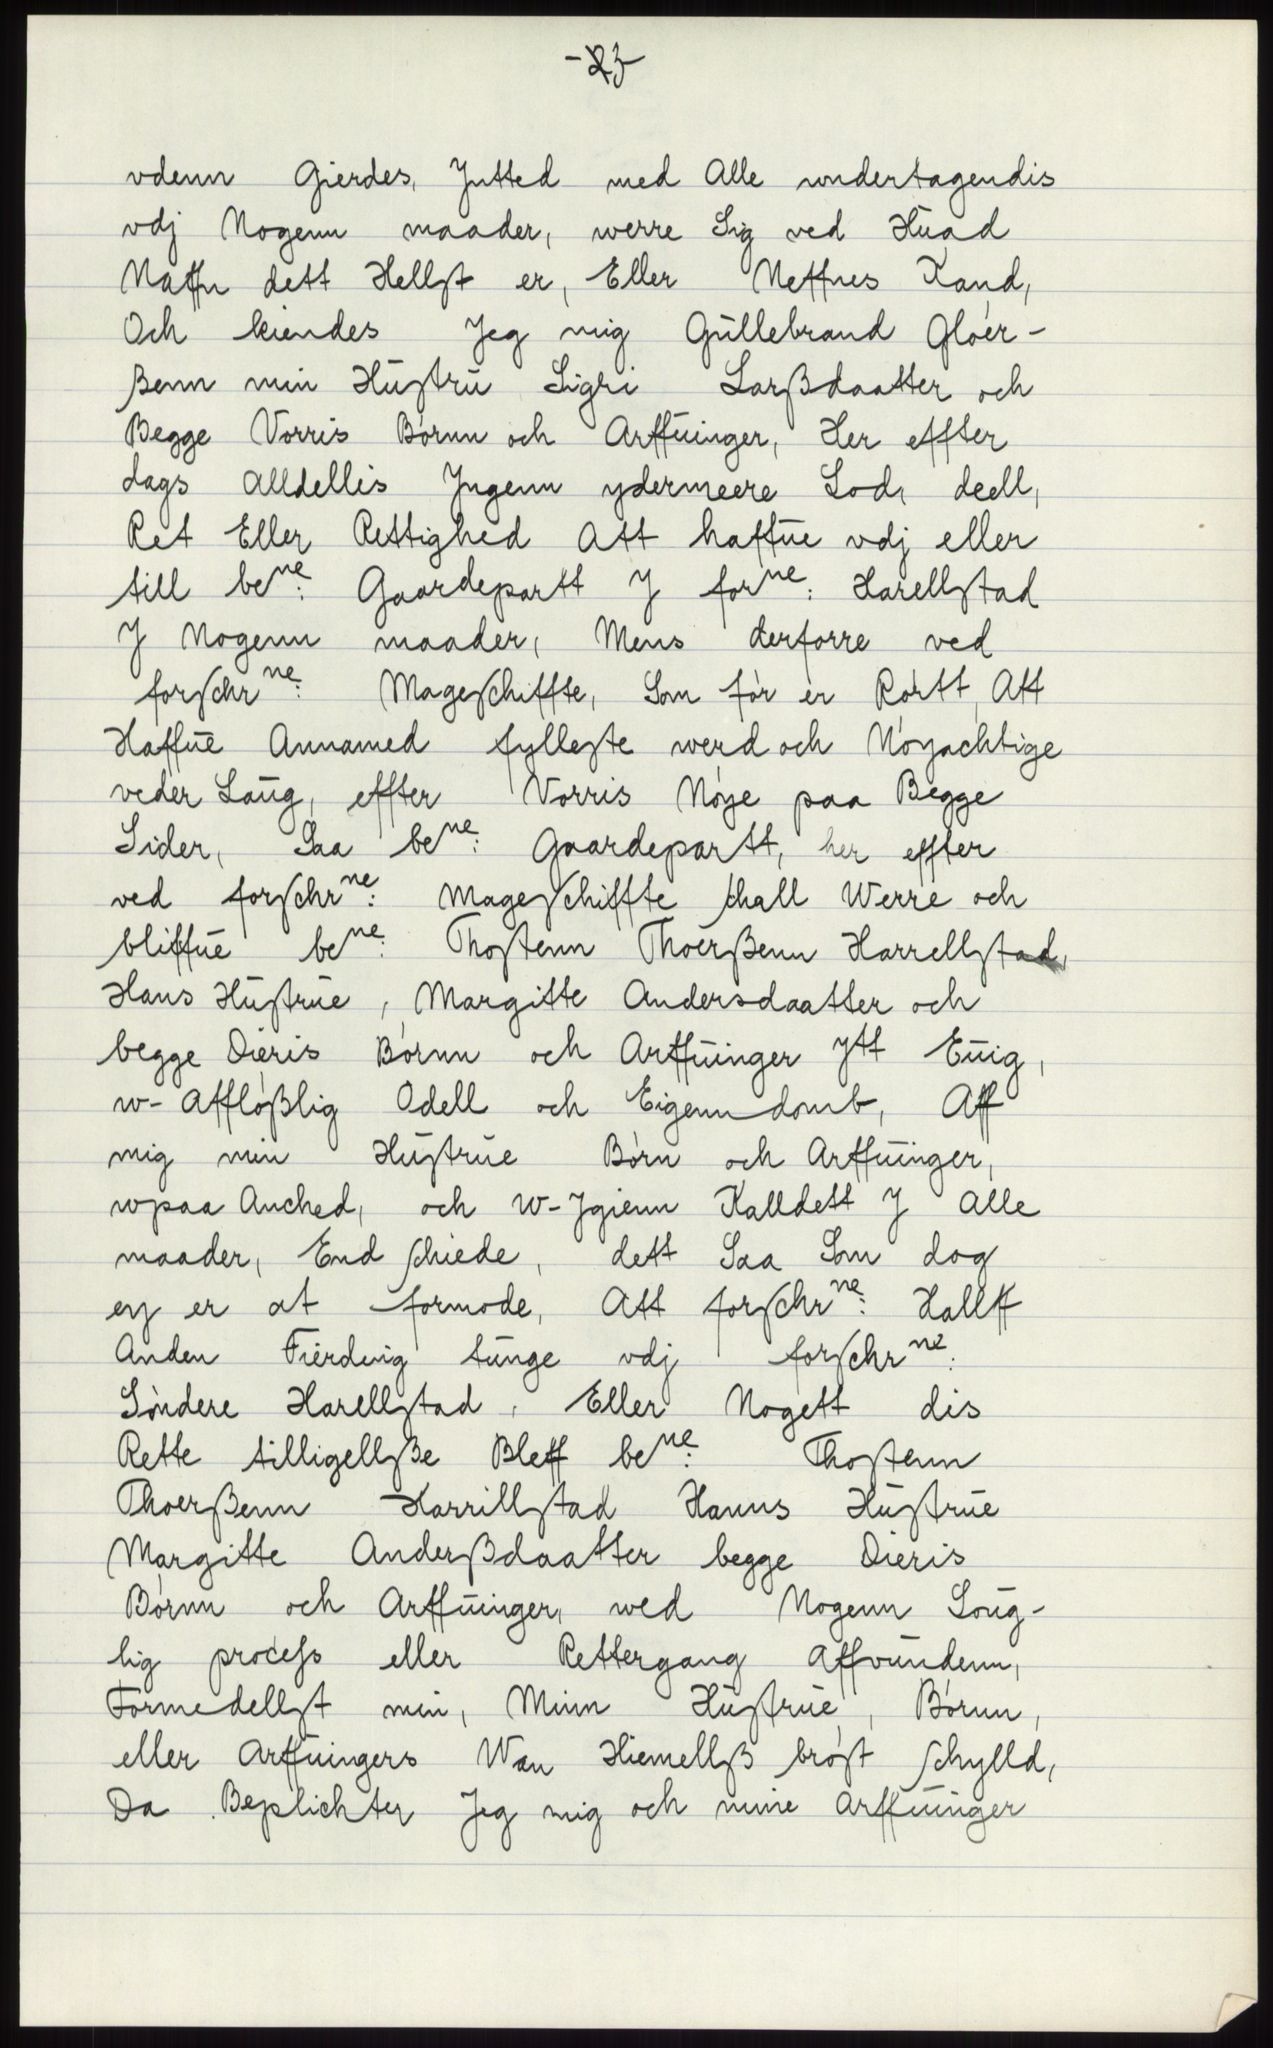 -23
vdenn Gierdes, Jntted med Alle undertagendis
vdj Nogenn maader, werre Sig ved Huad
Naffn dett Hellst er, Eller Neffnes Kand,
Och kiendes Jeg mig Gullebrand Gloer-
ßenn min Hustru Sigri Larßdaatter och
Begge Vorris Börnn och Arffuinger, Her effter
dags Alldellis Jngenn ydermeere Lod, deell,
Ret Eller Rettighed Att haffue vdj eller
till be ne: Gaardepartt J for ne: Harellstad
J Nogenn maader, Mens derforre ved
forschr ne: Mageschiffte, Som för er Rörtt, Att
Haffue Annamed fylleste werd och Nöyachtige
veder Laug, effter Vorris Nöye paa Begge
Sider, Saa be ne: Gaardepartt, her effter
ved forschr ne: Mageschiffte schall Werre och
bliffue be ne: Thostenn Thoerßenn Harrellstad,
Hans Hustrue, Margitte Andersdaatter och
begge Dieris Börnn och Arffuinger Ytt Euig,
w-Afflößlig Odell och Eigenndomb, Aff
mig min Hustrue Börn och Arffuinger,
wpaa Anched, och w-Jgienn Kalldett J Alle
maader, End schiede, dett Saa Som dog
ey er at formode, Att forschr ne: Hallff
Anden Fierding tunge vdj forschr ne:
Söndere Harellstad, Eller Nogett dis
Rette tilligellße Bleff be ne: Thostenn
Thoerßenn Harrillstad Hanns Hustrue
Margitte Anderßdaatter begge Dieris
Börnn och Arffuinger, wed Nogenn Loug-
lig process eller Rettergang Affvundenn,
Formedellst min, Minn Hustrue, Börnn,
eller Arffuingers Wan Hiemellß bröst schylld,
Da Beplichter Jeg mig och mine Arffuinger